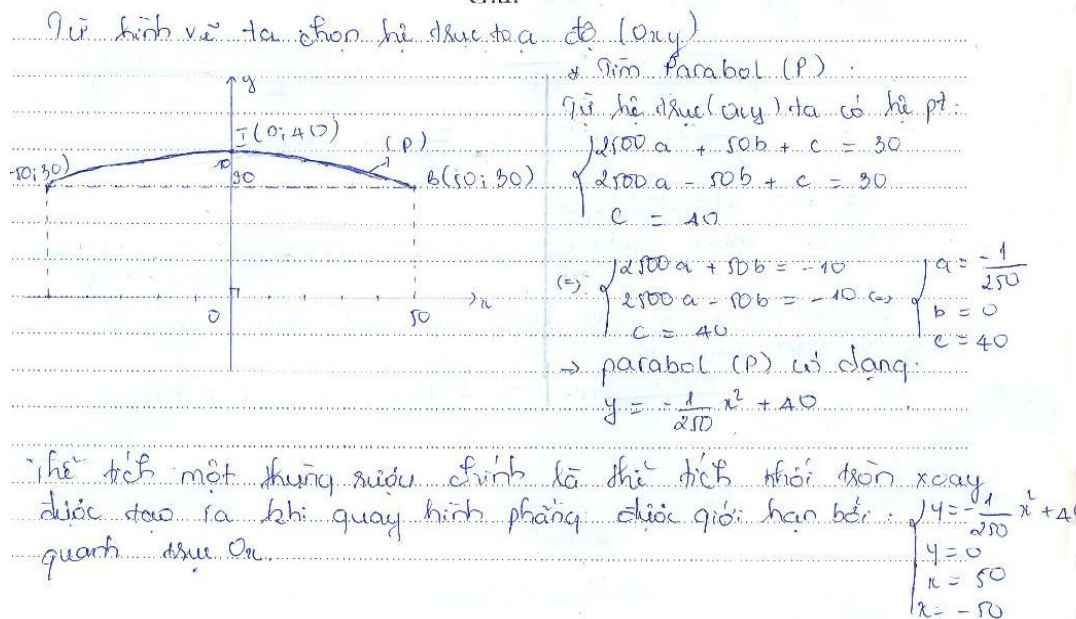 Từ hình vẽ ta chọn hệ trục tọa độ (Oxy)
y
I(0;40)
(P)
-50;30)
10
30
B(50;30)
0
50
x
* Tìm Parabol (P) :
Từ hệ trục (Oxy) ta có hệ pt:
2500a + 50b + c = 30
2500a - 50b + c = 30
c = 40
(=) 2500a + 50b = -10
2500a - 50b = -10 (=)
c = 40
a = -1/250
b = 0
c = 40
→ parabol (P) có dạng:
y = -1/250 x² + 40
Thể tích một thùng rượu chính là thể tích khối tròn xoay
được tạo ra khi quay hình phẳng được giới hạn bởi :
quanh trục Ox.
y = -1/250 x² + 4
y = 0
x = 50
x = -50